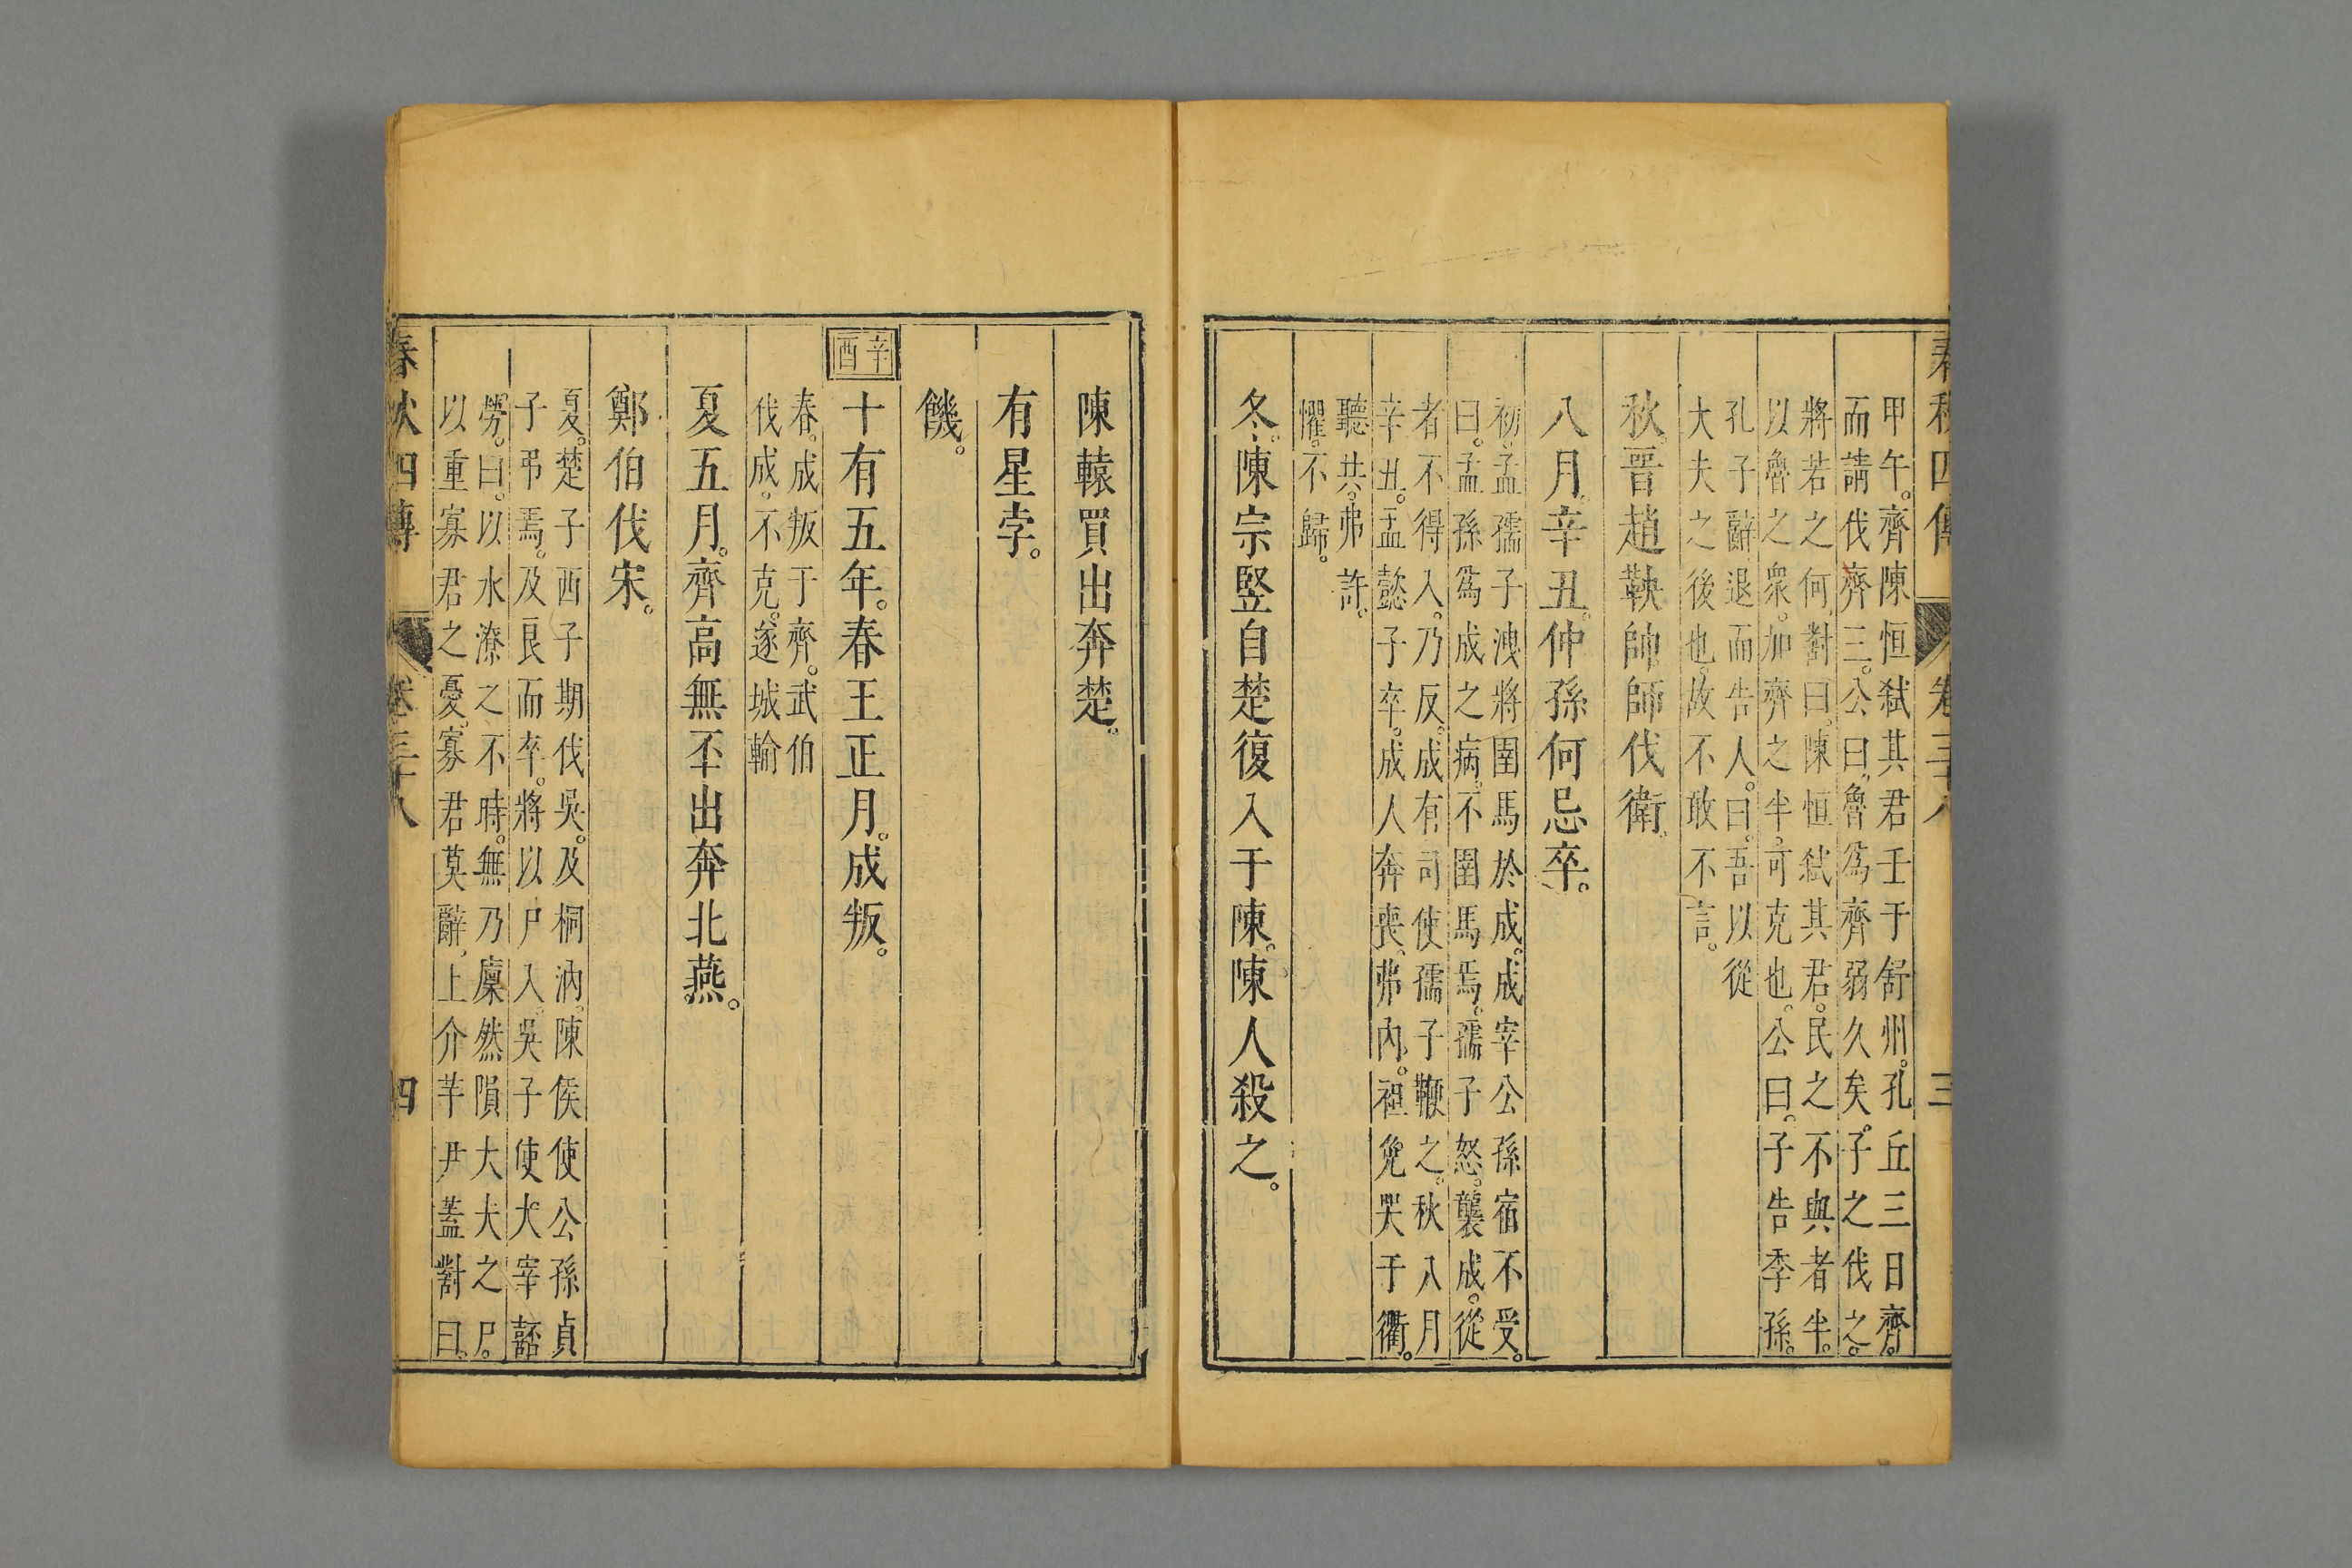 春秋四傳 卷三十八 三
甲午。齊陳恒弑其君壬于舒州。孔丘三日齊。
而請伐齊三。公曰。魯爲齊弱久矣。子之伐之。
將若之何。對曰。陳恒弑其君。民之不與者半。
以魯之衆。加齊之半。可克也。公曰。子告季孫。
孔子辭退而告人。曰。吾以從
大夫之後也。故不敢不言。
秋。晉趙鞅帥師伐衛。
八月。辛丑。仲孫何忌卒。
初。孟孺子洩將圉馬於成。成宰公孫宿不受。
曰。孟孫爲成之病。不圉馬焉。孺子怒。襲成。從
者不得入。乃反。成有司使孺子鞭之。秋八月
辛丑。孟懿子卒。成人奔喪。弗內。袒免哭于衢。
聽共。弗許。
懼。不歸。
冬。陳宗竪自楚復入于陳。陳人殺之。
陳轅買出奔楚。
有星孛。
饑。
辛酉
十有五年。春王正月。成叛。
春。成叛于齊。武伯
伐成。不克。遂城輸
夏五月。齊高無㔻出奔北燕。
鄭伯伐宋。
夏。楚子西子期伐吳。及桐汭。陳侯使公孫貞
子弔焉。及良而卒。將以尸入。吳子使大宰嚭
勞。曰。以水潦之不時。無乃廩然隕大夫之尸。
以重寡君之憂。寡君莫辭。上介芊尹蓋對曰。
春秋四傳 卷三十八 四